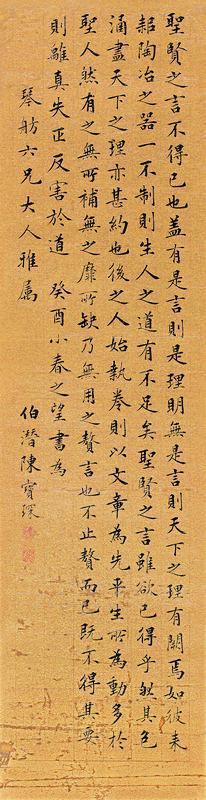 聖賢之言不得已也蓋有是言則是理明無是言則天下之理有闕焉如彼耒
耜陶冶之器一不制則生人之道有不足矣聖賢之言雖欲已得乎然其包
涵盡天下之理亦甚約也後之人始執卷則以文章為先平生所為動多於
聖人然有之無所補無之靡所缺乃無用之贅言也不止贅而已既不得其要
則離真失正反害於道 癸酉小春之望書為
琴舫六兄大人雅属
伯潛陳寶琛